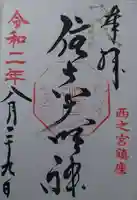 奉拝
西之宮鎮座
住吉大明神
令和二年
八月二十九日